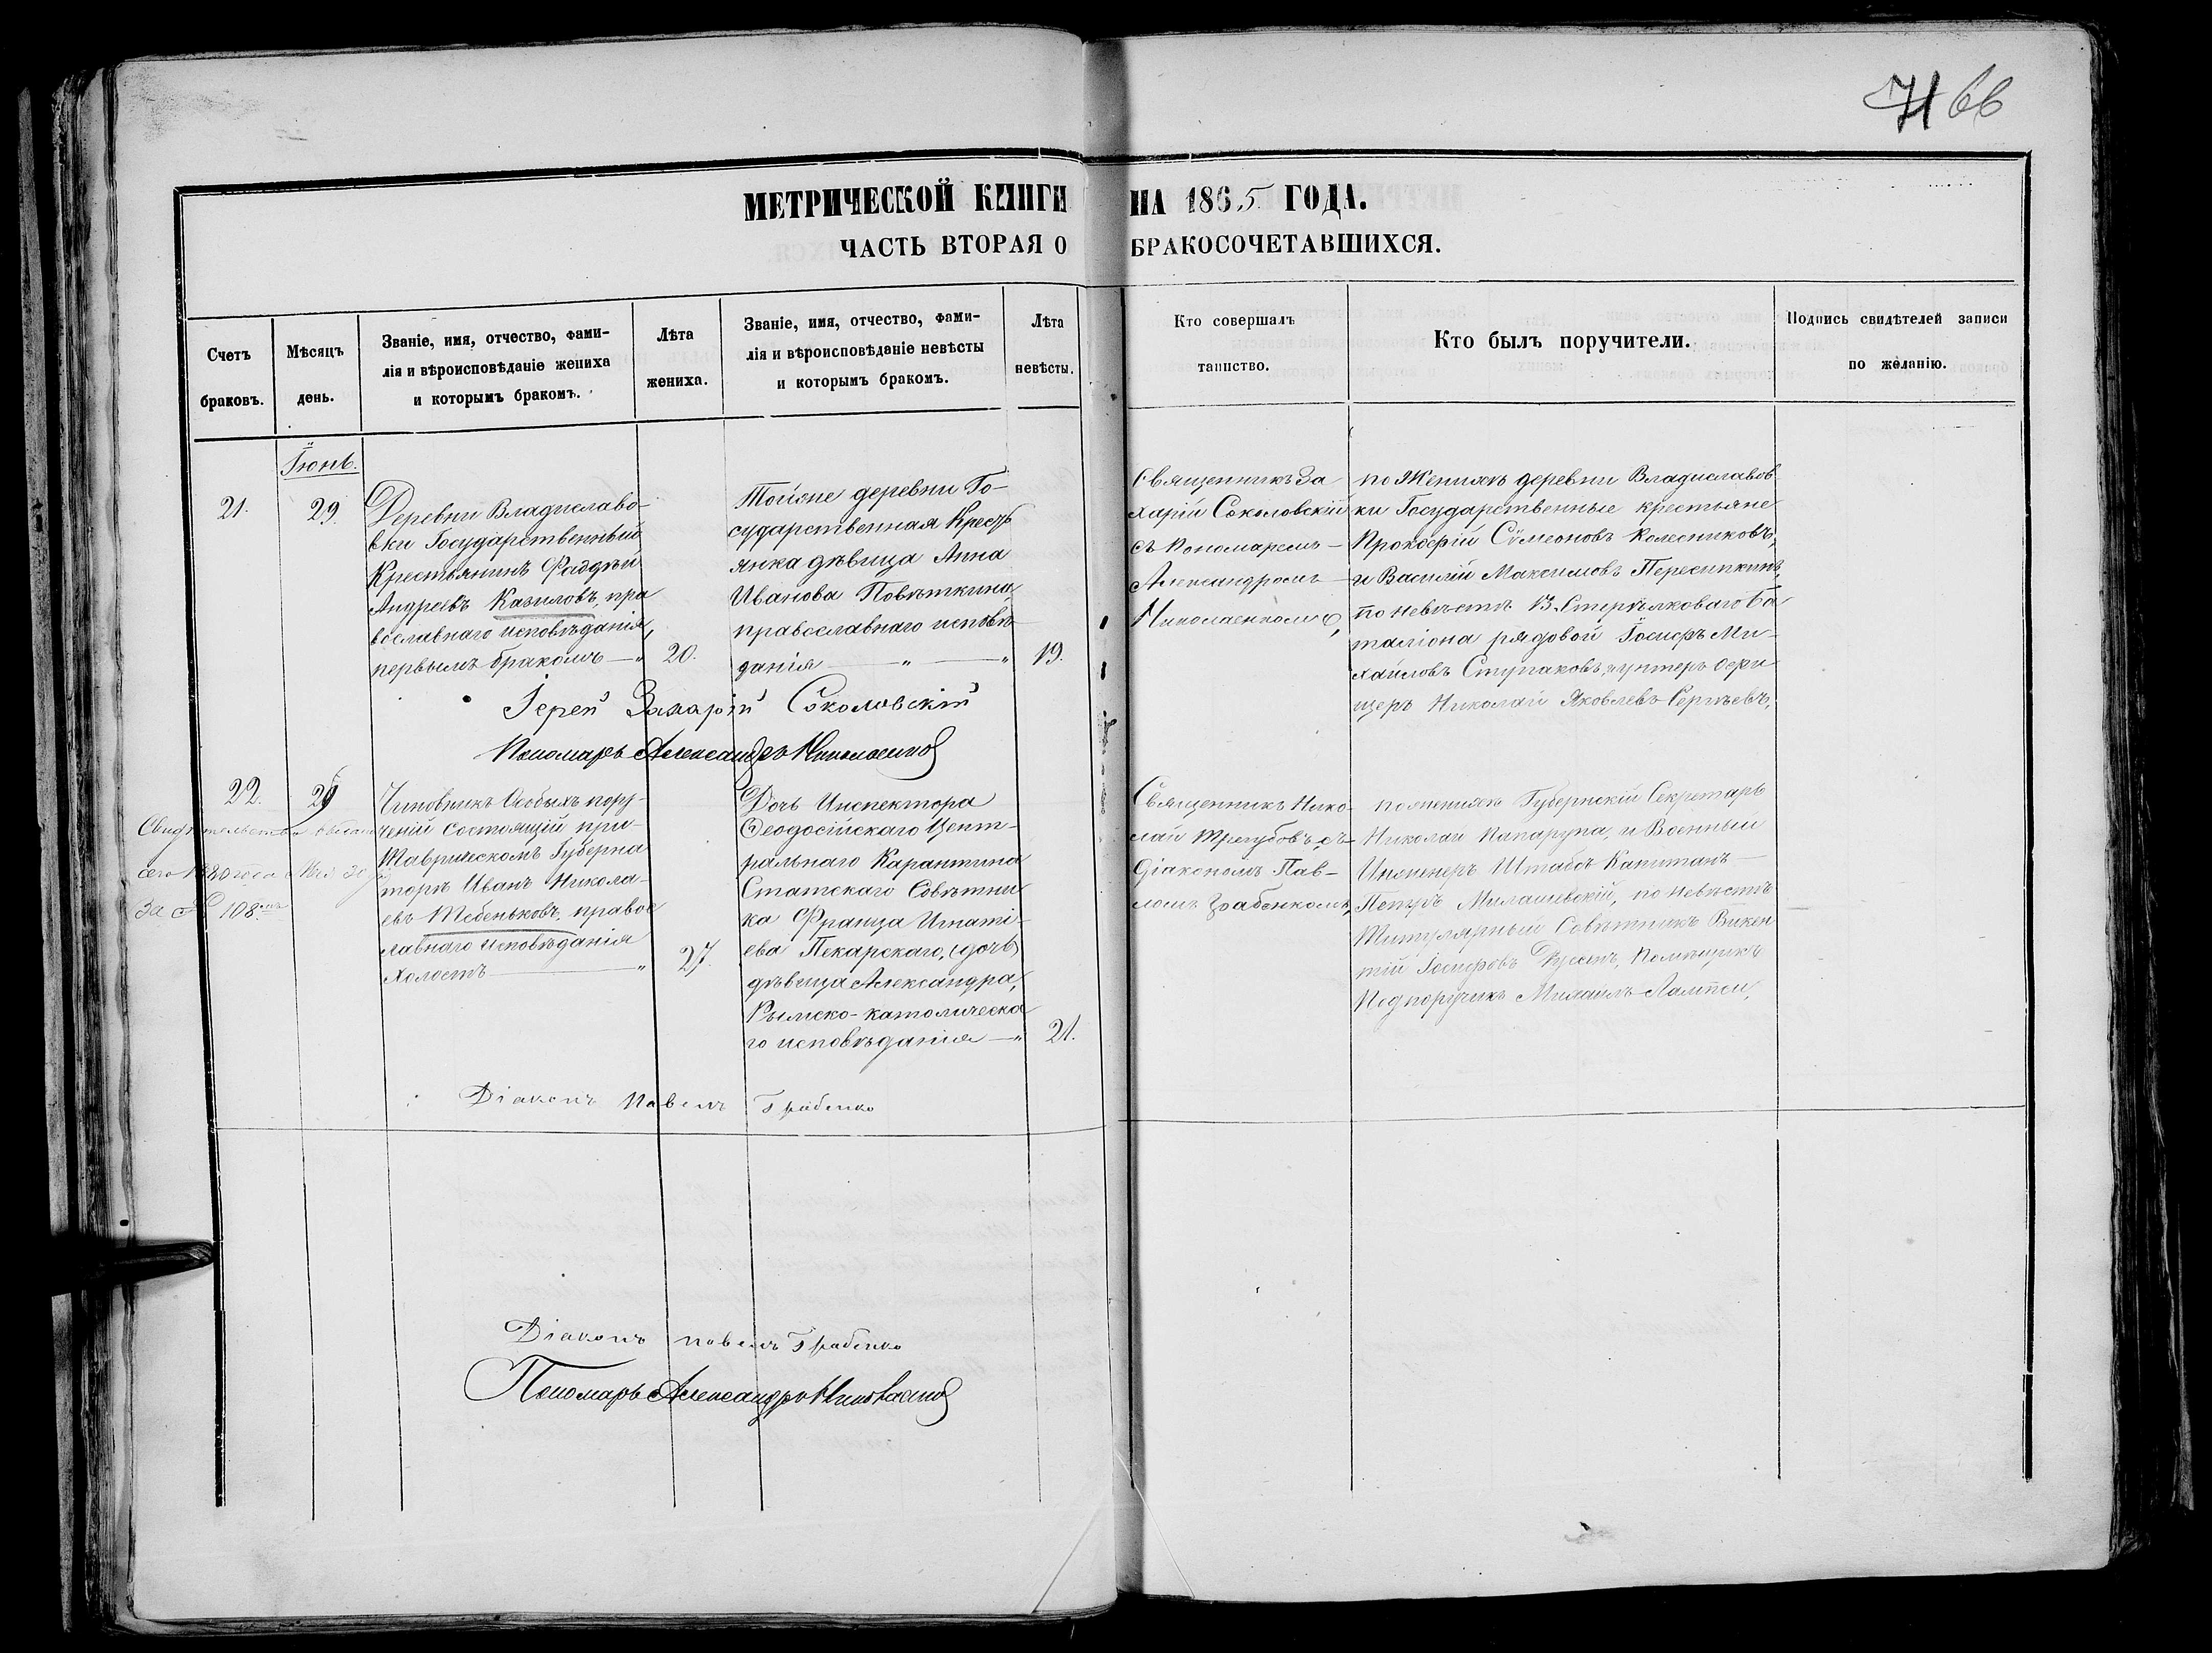 71 66
МЕТРИЧЕСКОЙ КНИГИ НА 1865 ГОДА.
ЧАСТЬ ВТОРАЯ О БРАКОСОЧЕТАВШИХСЯ.
Счетъ
браковъ.
Мѣсяцъ
день.
Званіе, имя, отчество, фами-
лія и вѣроисповѣданіе жениха
и которымъ бракомъ.
Лѣта
жениха.
Званіе, имя, отчество, фами-
лія и вѣроисповѣданіе невѣсты
и которымъ бракомъ.
Лѣта
невѣсты.
Кто совершалъ
таинство.
Кто былъ поручители.
Подпись свидѣтелей записи
по желанію.
Іюнь.
21.
29.
Деревни Владиславо-
вки Государственный
Крестьянинъ Фаддѣй
Андреевъ Казиловъ, пра
вославнаго исповѣданія,
первымъ бракомъ — "
20.
Тойже деревни Го-
сударственная Кресть
янка дѣвица Анна
Иванова Повѣткина,
православнаго исповѣ
данія — " — "
19.
Священникъ За
харій Соколовскій
съ Пономаремъ —
Александромъ —
Николаенкомъ,
по Женихѣ деревни Владиславов
ки Государственные крестьяне
Прокофій Сѵмеоновъ Колесниковъ,
и Василій Максимовъ Пересипкинъ,
по невѣстѣ В. Стерѣлковаго Ба
таліона рядовой Іосифъ Ми-
хайловъ Ступаковъ, и унтеръ Офи
церъ Николай Яковлевъ Сергѣевъ,
Іерей Захарій Соколовскій
Пономарь Александръ Николаенко
22.
29
Свидѣтельство выдано
сего 1880 года Мая 30
За № 108.
Чиновникъ Особыхъ пору-
ченій состоящій при-
Таврическомъ Губерна
торѣ Иванъ Никола-
евъ Тебеньковъ, правос
лавнаго исповѣданія
Холостъ — "
27.
Дочь Инспектора
Ѳеодосійскаго Цент-
ральнаго Карантина
Статскаго Совѣтни
ка Франца Игнаті-
ева Пекарскаго, (дочь)
дѣвица Александра,
Рымско-католическа
го исповѣданія — "
21.
Священникъ Нико-
лай Трегубовъ, съ
Діакономъ Пав-
ломъ Грабенкомъ,
по женихѣ Губернскій Секретарь
Николай Папарупа, и Военный
Инженеръ Штабсъ Капитанъ —
Петръ Милашевскій, по невѣстѣ
Титулярный Совѣтникъ Викен
тій Іосифовъ Помѣщикъ
Подпоручикъ Михаилъ Лампси,
Діаконъ Павелъ Грабенко
Діаконъ Павелъ Грабенко
Пономарь Александръ Николаенко